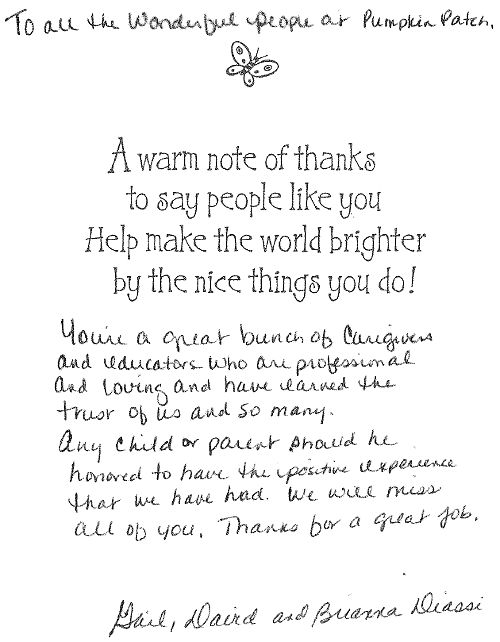 To all the Wonderful people at Pumpkin Patch.
A warm note of thanks
to say people like you
Help make the world brighter
by the nice things you do!
You're a great bunch of Caregivers
and educators who are professional
and loving and have earned the
trust of us and so many.
Any child or parent should be
honored to have the positive experience
that we have had. We will miss
all of you. Thanks for a great job.
Gail, David and Brianna Diassi